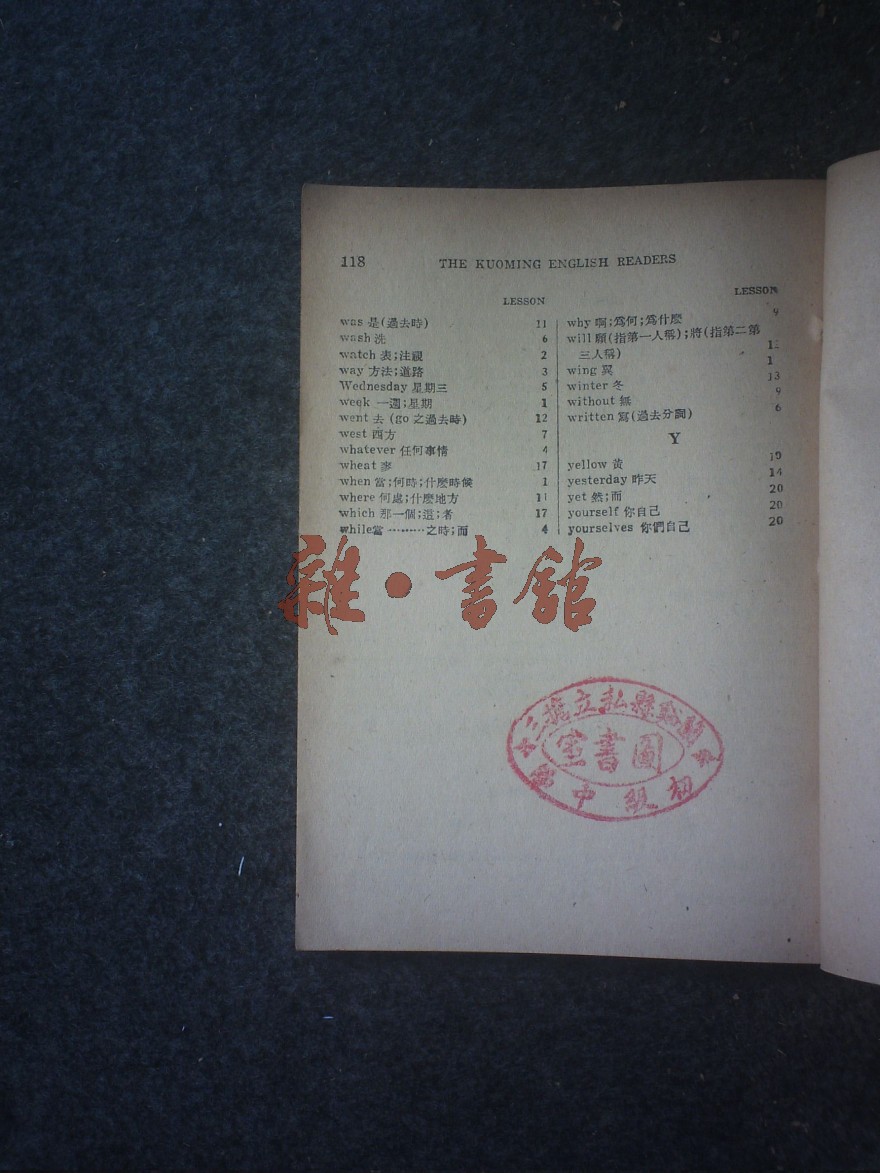 118
THE KUOMING ENGLISH READERS
LESSON
was 是(過去時) 11
wash 洗 6
watch 表;注視 2
way 方法;道路 3
Wednesday 星期三 5
week 一週;星期 1
went 去 (go 之過去時) 12
west 西方 7
whatever 任何事情 4
wheat 麥 17
when 當;何時;什麼時候 1
where 何處;什麼地方 11
which 那一個;這;者 17
while當………之時;而 4
LESSON
why 啊;爲何;爲什麼 9
will 願(指第一人稱);將(指第二第
三人稱) 12
wing 翼 1
winter 冬 13
without 無 9
written 寫(過去分詞) 6
Y
yellow 黃 19
yesterday 昨天 14
yet 然;而 20
yourself 你自己 20
yourselves 你們自己 20
雜·書館
縣私立
圖書室
初級中